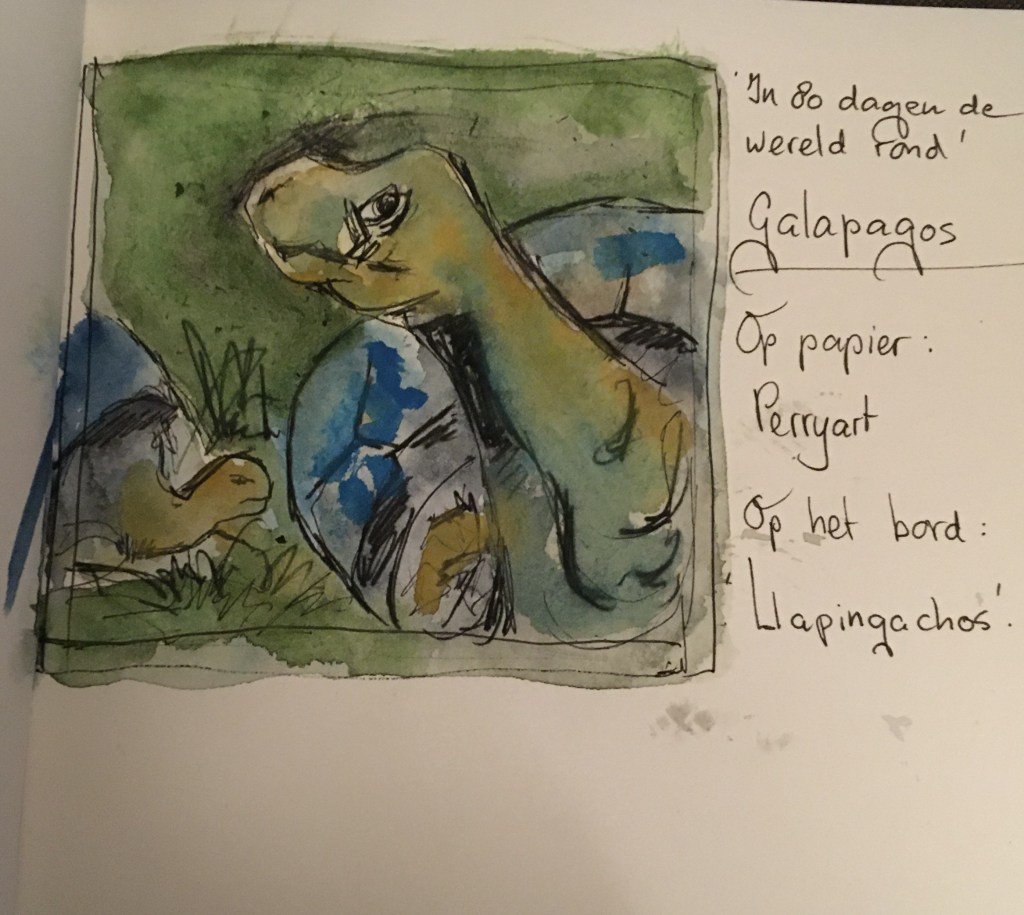 'In 80 dagen de
wereld rond'
Galapagos
Op papier :
Perryart
Op het bord :
Llapingachos'.